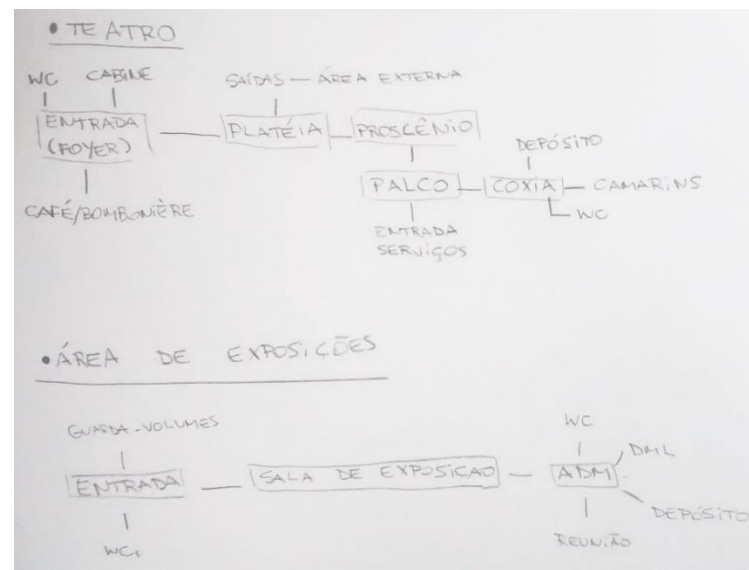 • TEATRO
WC CABINE
SAÍDAS — ÁREA EXTERNA
ENTRADA
(FOYER)
PLATÉIA
PROSCÊNIO
DEPÓSITO
PALCO
COXIA
CAMARINS
WC
CAFÉ/BOMBONIÈRE
ENTRADA
SERVIÇOS
• ÁREA DE EXPOSIÇÕES
GUARDA-VOLUMES
WC
DML
ENTRADA
SALA DE EXPOSIÇÃO
ADM
DEPÓSITO
WCs
REUNIÃO